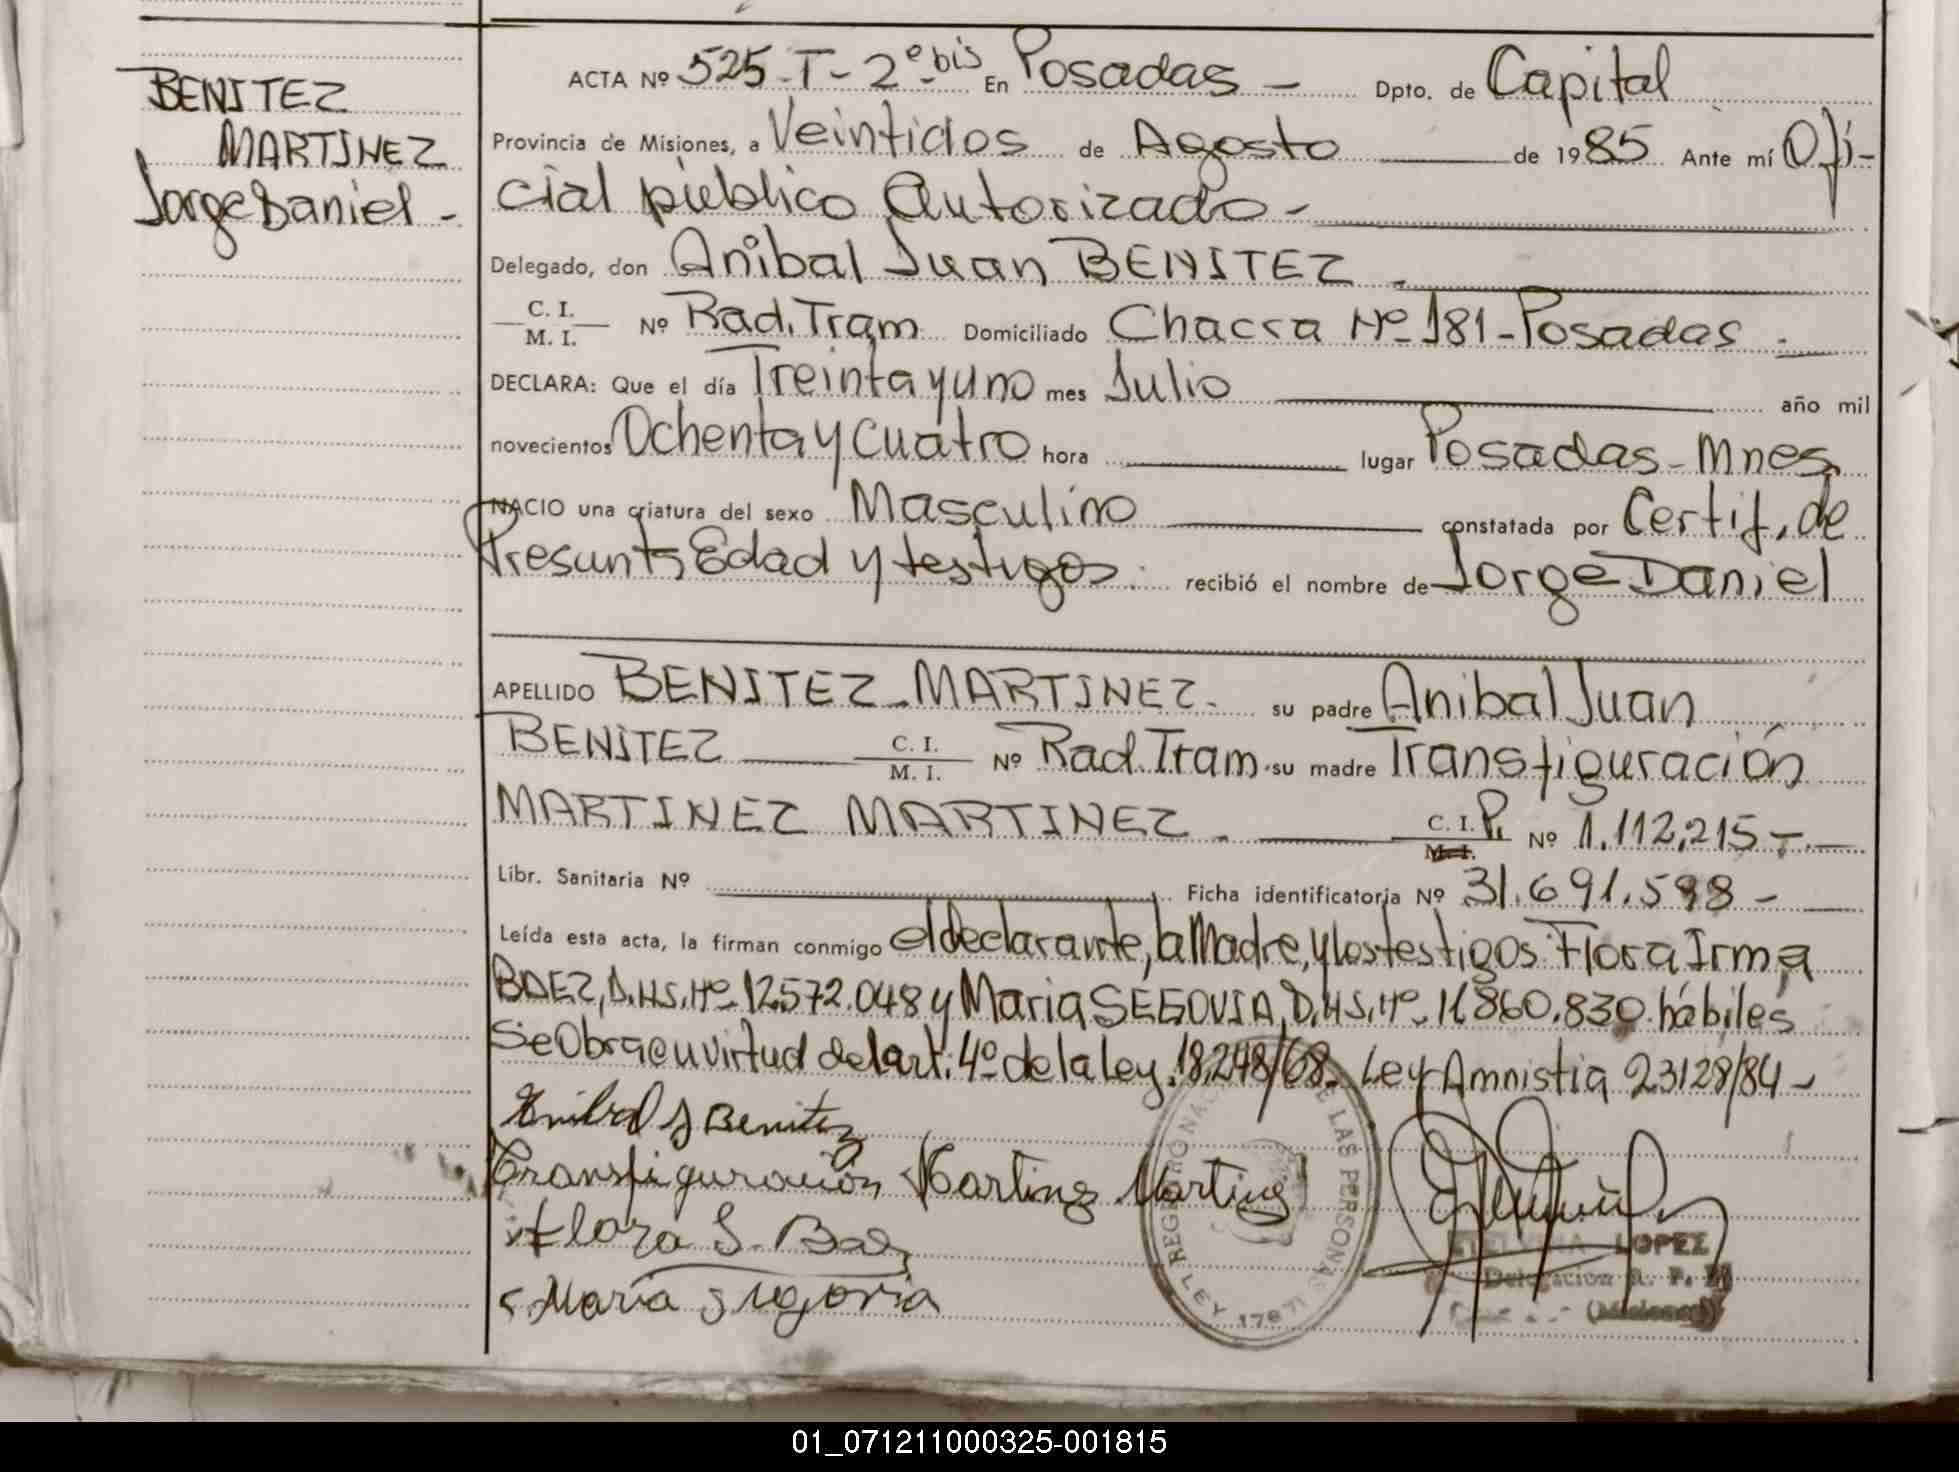 BENITEZ
MARTINEZ
Jorge Daniel -
ACTA Nº 525-T-2º bis En Posadas - Dpto. de Capital
Provincia de Misiones, a Veintidos de Agosto de 1985 Ante mí Ofi-
cial público Autorizado -
Delegado, don Anibal Juan BENITEZ.
C. I.
M. I. Nº Rad. Tram Domiciliado Chacra Nº 181-Posadas -
DECLARA: Que el día Treinta y uno mes Julio año mil
novecientos Ochenta y Cuatro hora lugar Posadas-Mnes.
NACIO una criatura del sexo Masculino constatada por Certif. de
Presunt, Edad y testigos. recibió el nombre de Jorge Daniel
APELLIDO BENITEZ-MARTINEZ- su padre Anibal Juan
BENITEZ C. I. M. I. Nº Rad. Tram su madre Transfiguración
MARTINEZ MARTINEZ. C. I. P. M. I. Nº 1.112.215 -
Libr. Sanitaria Nº Ficha identificatoria Nº 31.691.598 -
Leída esta acta, la firman conmigo el declarante, la Madre, y los testigos: Flora Irma
BAEZ, D.N.I. Nº 12.572.048 y Maria SEGOVIA, D.N.I. Nº 860.830 hábiles
Se Obra en virtud del art. 4º de la Ley 18.248/68. Ley Amnistia 23128/84 -
Anibal J Benitez
Transfiguración Martinez Martinez
Flora I. Baez
Maria Segovia
REGISTRO NAC DE LAS PERSONAS
LEY 17671
LOPEZ
Delegacion R. P.
(Misiones)
01_071211000325-001815